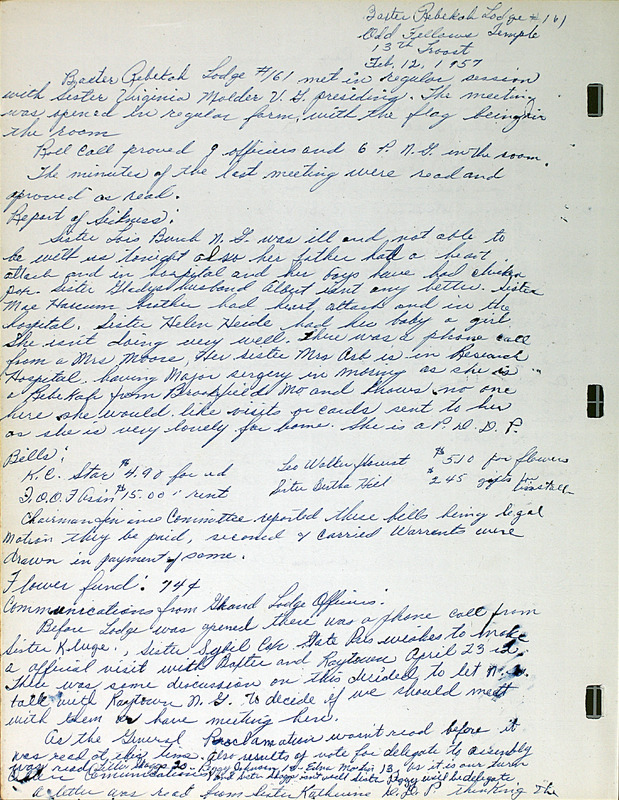 Baxter Rebekah Lodge #161
Odd Fellows Temple
13th Troost
Feb, 12, 1957
Baxter Rebekah Lodge #161 met in regular session
with Sister Virginia Molder V. G. presiding. The meeting
was opened in regular form, with the flag being in
the room
Roll call proved 9 officers and 6 P. N. G. in the room.
The minutes of the last meeting were read and
aproved as read.
Report of Sickness:
Sister Lois Bunch N. G. was ill and not able to
be with us tonight also her father had a heart
attack and in hospital and her boys have had chicken
pox. Sister Gladys husband Albert isn't any better. Sister
Mae Harcum brother had heart attack and in the
hospital. Sister Helen Heide had her baby a girl
She isn't doing very well. There was a phone call
from a Mrs Moore, Her sister Mrs Ast is in Research
Hospital, having Major surgery in morning as she is
a Rebekah from Brookfield Mo and knows no one
here she would like visits or cards sent to her
as she is very lonely for home. She is a P. D. D. P.
Bills:
K. C. Star $4.90 for ad Leo Walker florist $5.10 for flowers
I. O. O. F. $15.00 " rent Sister Bertha Heil $2.45 gifts for install
Chairman Finance Committee reported these bills being legal
Motion they be paid, second & carried Warrants were
drawn in payment of same.
Flower fund: 74¢
Communications from Grand Lodge Officers.
Before Lodge was opened there was a phone call from
Sister Kluge., Sister Sybil Cox State Pres wishes to make
a official visit with Baxter and Raytown April 23
There was some discussion on this decided to let N. G.
talk with Raytown N. G. to decide if we should meet
with them or have meeting here.
As the General Proclamation wasn't read before it
was read at this time. also results of vote for delegate to assembly
was read 23 - Peggy Johnson 18 - Edna Martin 13, as it is our turn
Communications sister Peggy will be delegate
A letter was read from Sister Katherine D. D. P thinking the